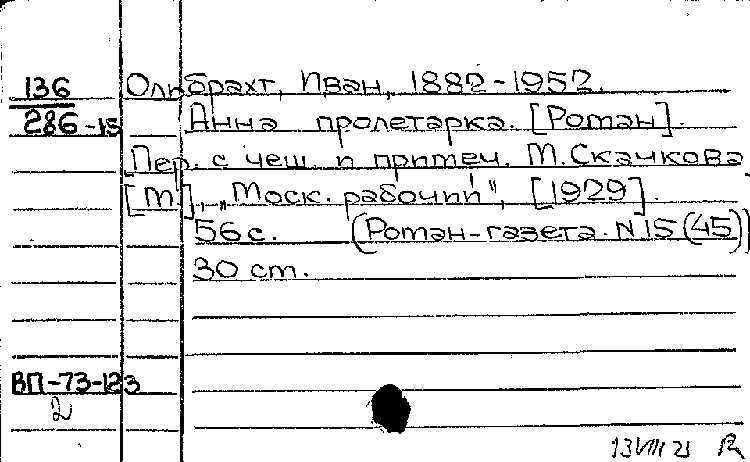 136
286-15
Ольбрахт, Иван, 1882-1952.
Анна пролетарка. [Роман].
Пер. с чеш. и примеч. М. Скачкова
[М], „Моск. рабочий", [1929]
56 с. (Роман-газета. N 15 (45))
30 ст.
ВП-73-123
2
13 VIII 73